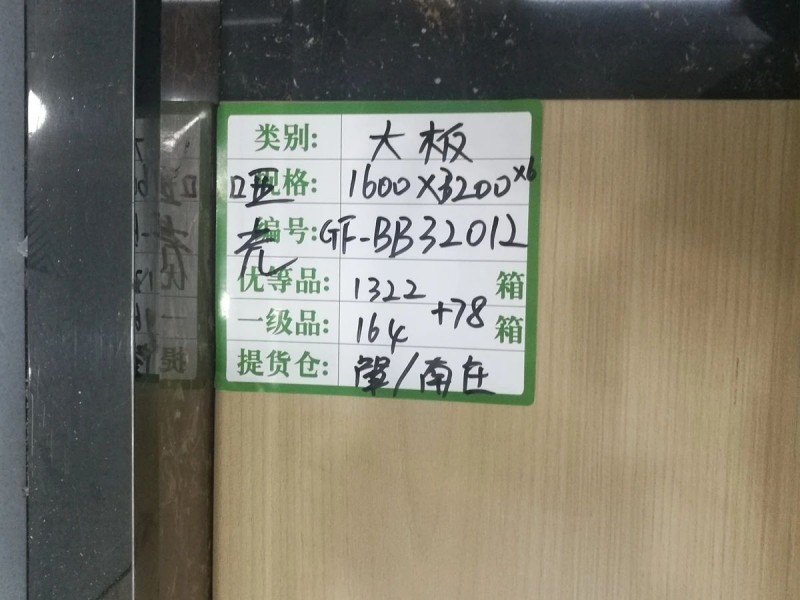 类别: 大板
规格: 1600×3200×6
编号: GF-BB32012
优等品: 1322 箱
+78
一级品: 164 箱
提货仓: 肇/南庄
哑